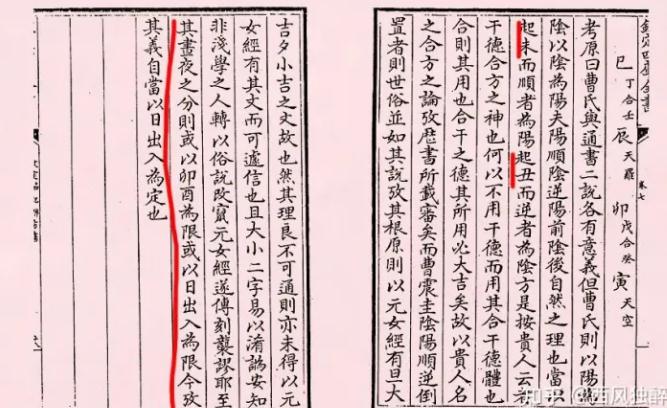 欽定四庫全書 卷七
巳 丁合壬 辰 天羅 卯 戊合癸 寅 天空
考原曰曹氏與通書二說各有意義但曹氏則以陽
陰以陰為陽夫陽順陰逆陽前陰後自然之理也當以
起未而順者為陽起丑而逆者為陰方是按貴人云者
干德合方之神也何以不用干德而用其合干德體也
合則其用也合干之德其所用必大吉矣故以貴人名
之合方之論攷厯書所載審矣而曹震圭陰陽順逆倒
置者則世俗並如其說攷其根原則以元女經有旦大
吉夕小吉之文故也然其理良不可通則亦未得以元
女經有其文而可遽信也且大小二字易以淆譌安知
非淺學之人轉以俗說改竄元女經遂傳刻襲謬耶至
其晝夜之分則或以卯酉為限或以日出入為限今攷
其義自當以日出入為定也
知乎 @西风独醉